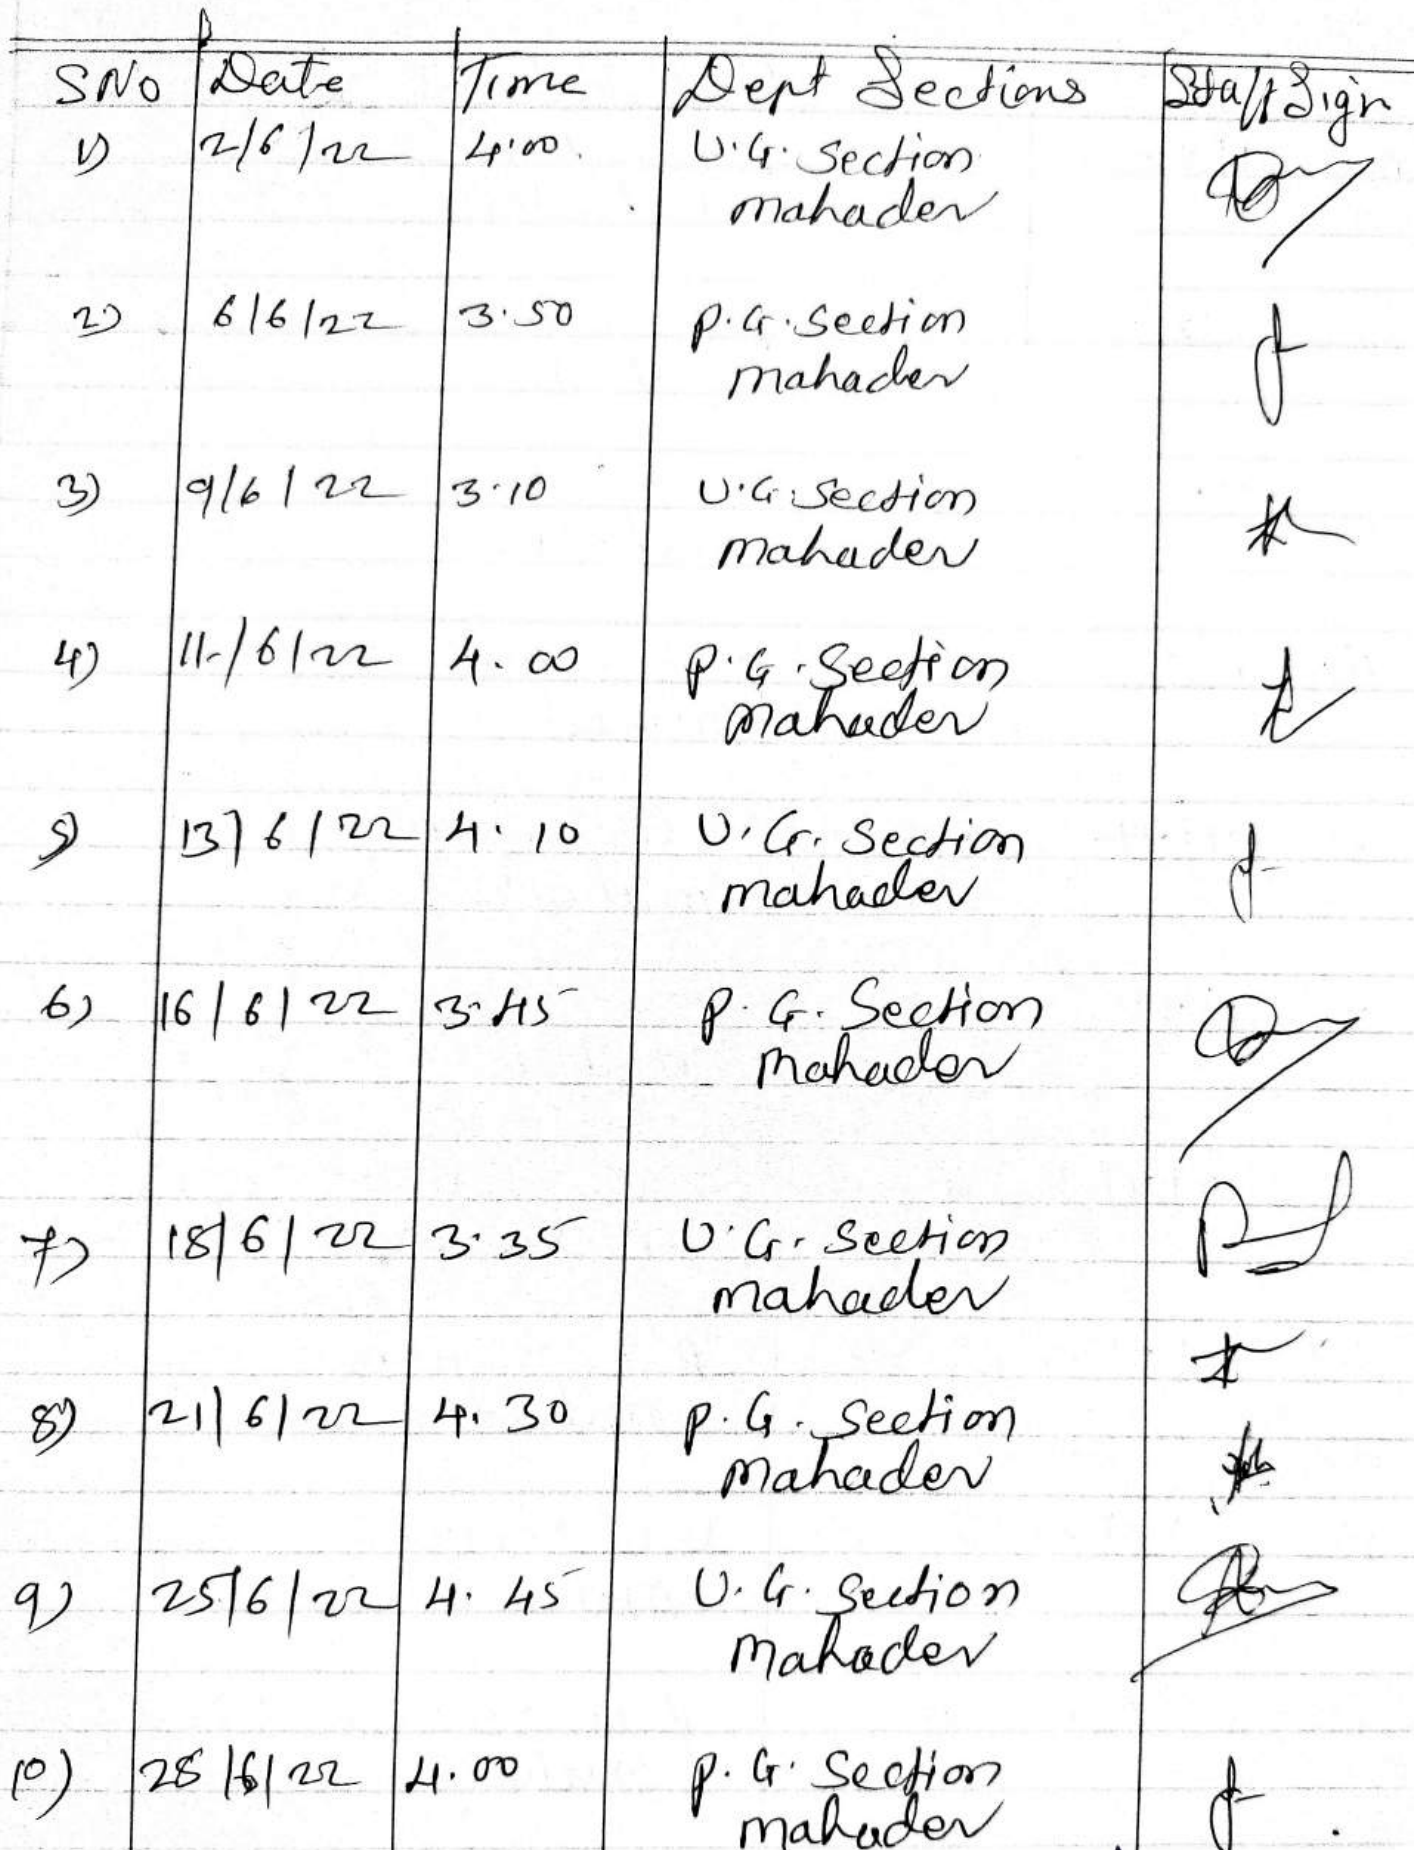 SNo Date Time Dept Sections Staff Sign
1) 2/6/22 4.00. U.G. Section
mahadev
2) 6/6/22 3.50 P.G. Section
mahadev
3) 9/6/22 3.10 U.G. Section
mahadev
4) 11/6/22 4.00 P.G. Section
mahadev
5) 13/6/22 4.10 U.G. Section
mahadev
6) 16/6/22 3.45 P.G. Section
mahadev
7) 18/6/22 3.35 U.G. Section
mahadev
8) 21/6/22 4.30 P.G. Section
mahadev
9) 25/6/22 4.45 U.G. Section
mahadev
10) 28/6/22 4.00 P.G. Section
mahadev